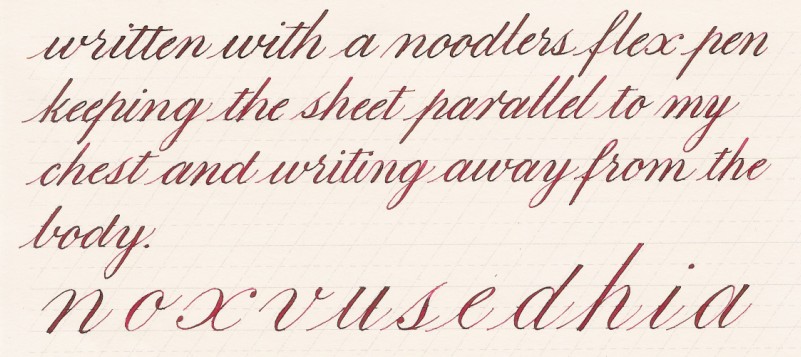 written with a noodlers flex pen
keeping the sheet parallel to my
chest and writing away from the
body.
n o x v u s e d h i a